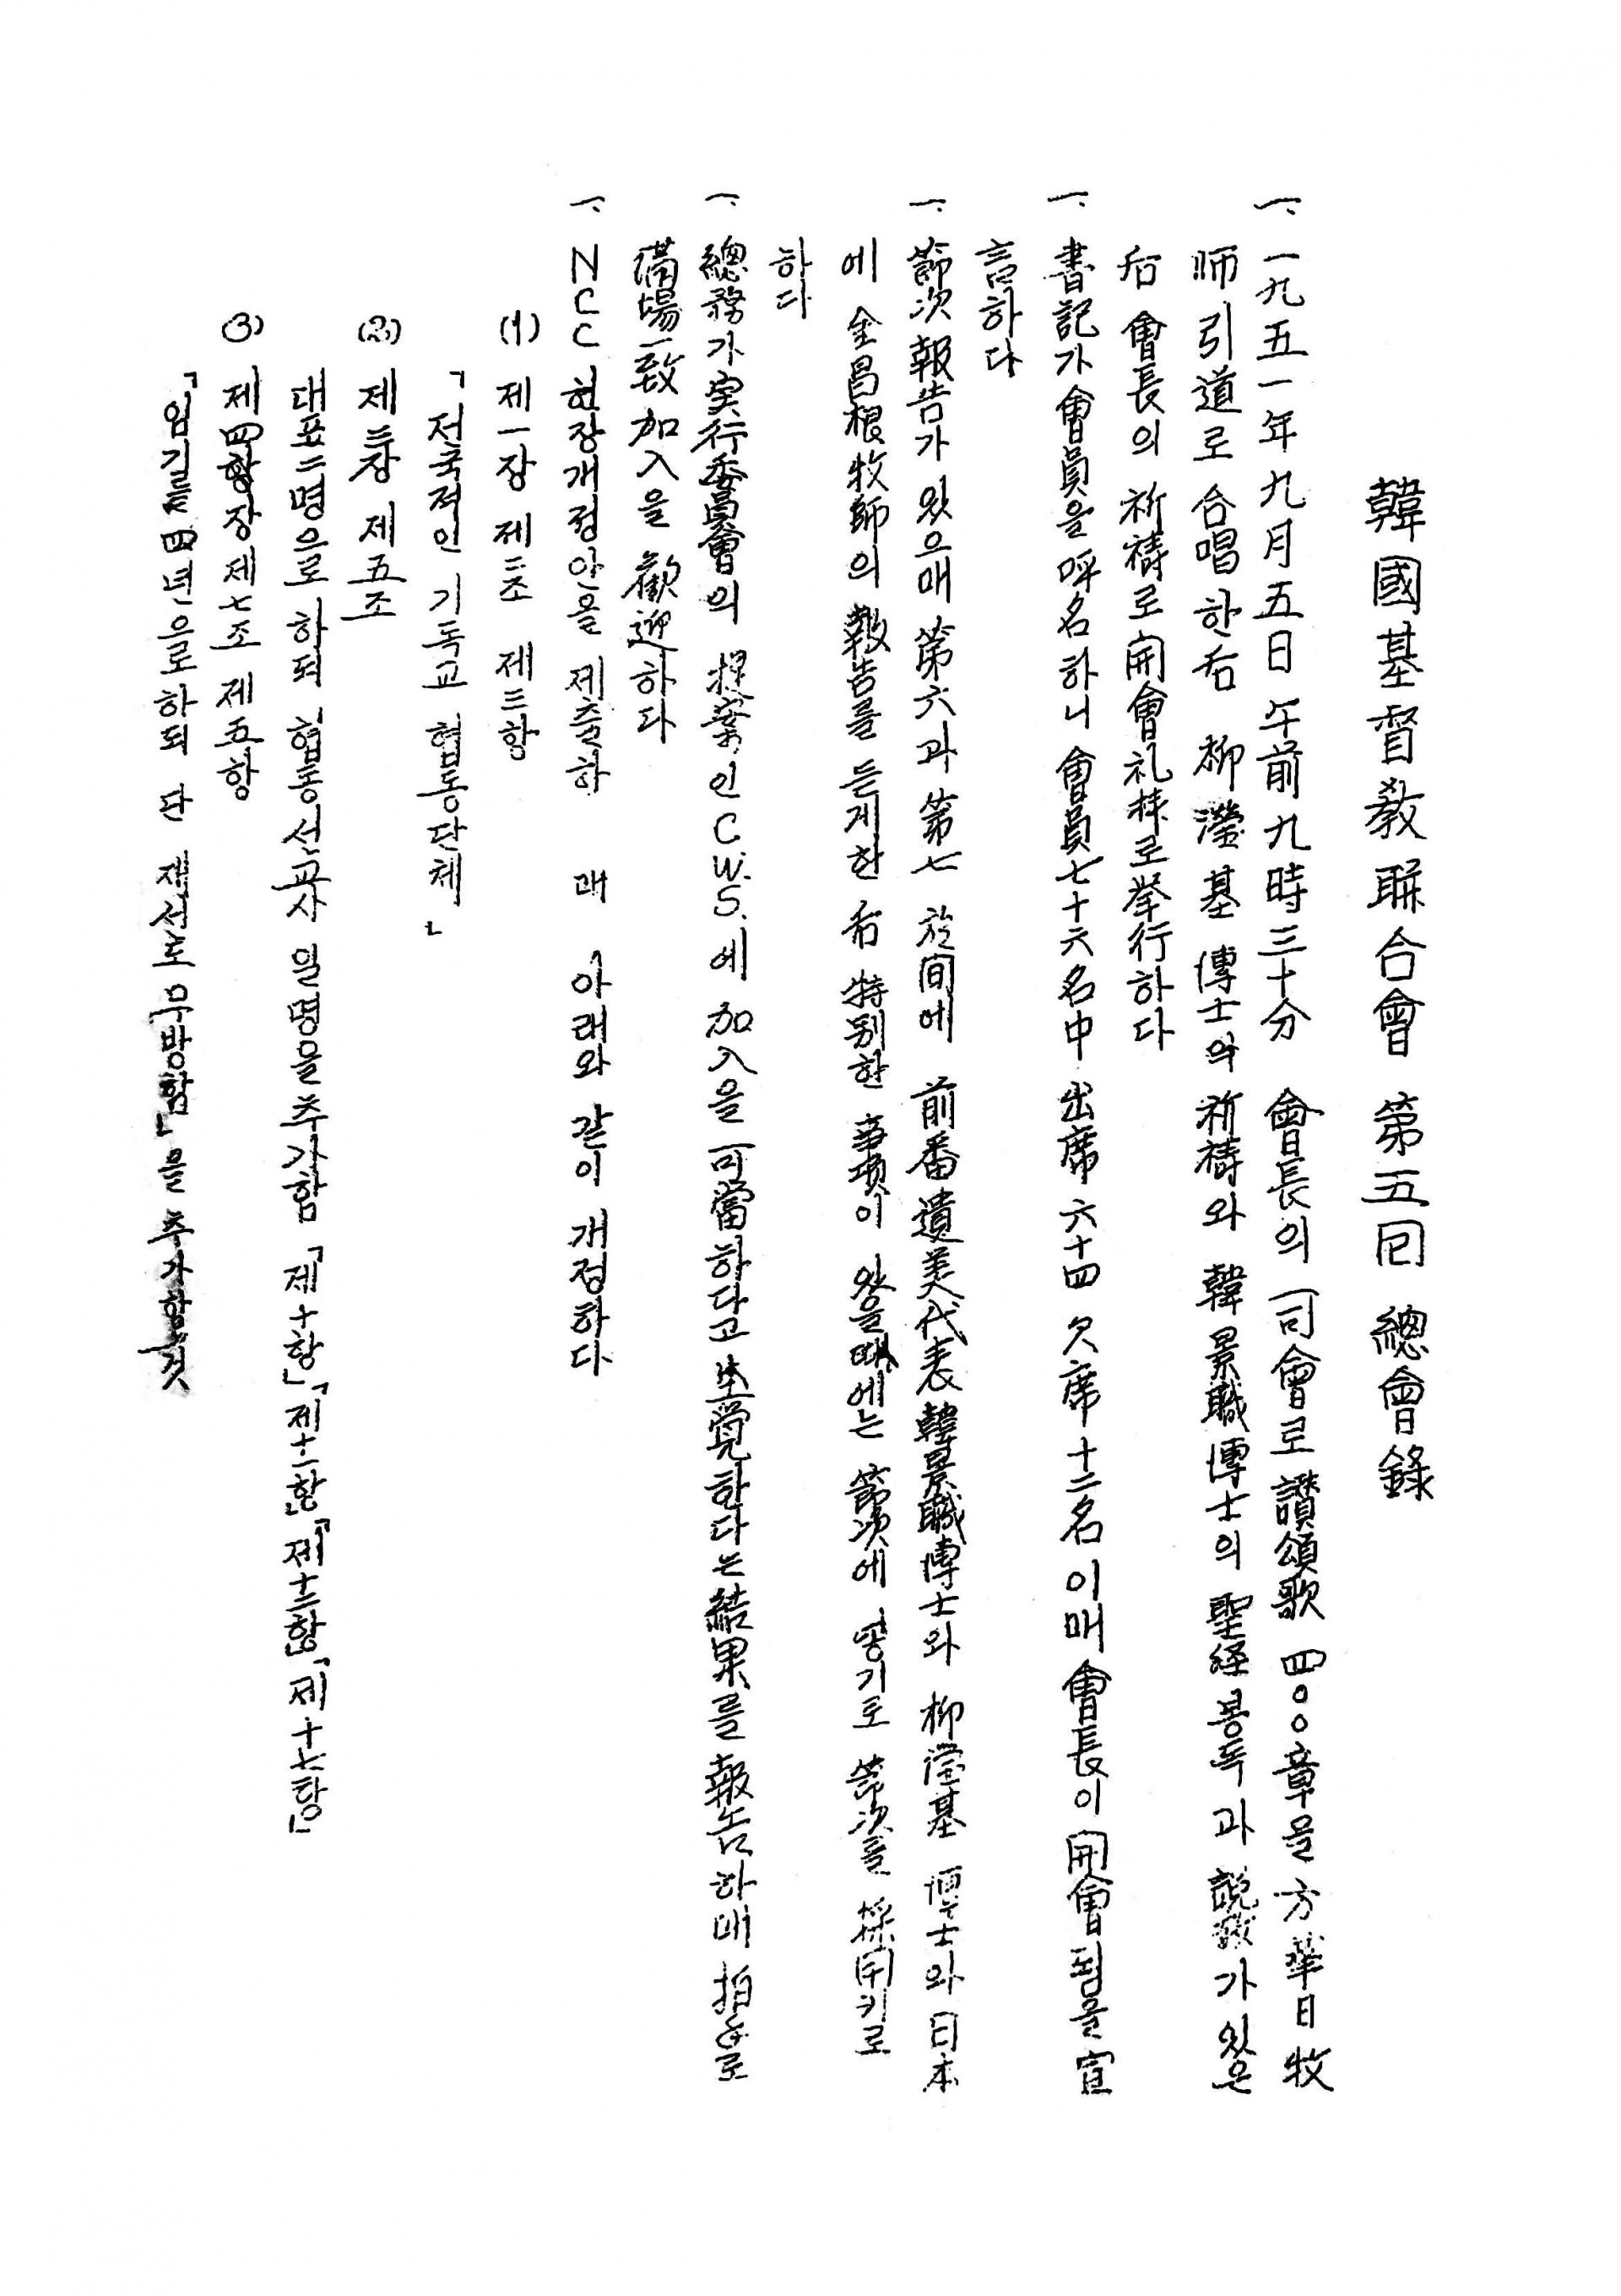 韓國基督敎聯合會 第五回 總會錄
一. 一九五一年 九月 五日 午前 九時三十分 會長의 司會로 讚頌歌 四００章을 方華日 牧
师 引道로 合唱한后 柳瀅基 博士의 祈禱와 韓景職博士의 聖経봉독과 說敎가 있은
后 會長의 祈禱로 開會礼拜로 挙行하다
一. 書記가 會員을 呼名하니 會員七十六名中 出席 六十四 欠席 十二名이매 會長이 開會됨을 宣
言하다
一. 節次報告가 있으매 第六과 第七 於间에 前番遺美代表 韓景職博士와 柳瀅基 博士와 日本
에 金昌根牧師의 報告를 듣게한 后 特別한 事項이 있을때에는 節次에 넣기로 節次를 採用키로
하다
一. 總務가 実行委員會의 提案인 C.W.S.에 加入을 可當하다고 生覚한다는 結果를 報告하매 拍手로
滿場一致 加入을 歡迎하다
一. NCC 헌장개정안을 제출하매 아래와 같이 개정하다
(1) 제一장 제二조 제三항
「전국적인 기독교 협동단체」
(2) 제三장 제五조
대표二명으로 하되 협동선교사 일명을 추가함 「제十항」「제十二항」「제十三항」「제十七항」
(3) 제四장 제七조 제五항
「임기를 四년으로하되 단 재선도 무방함」을 추가할것